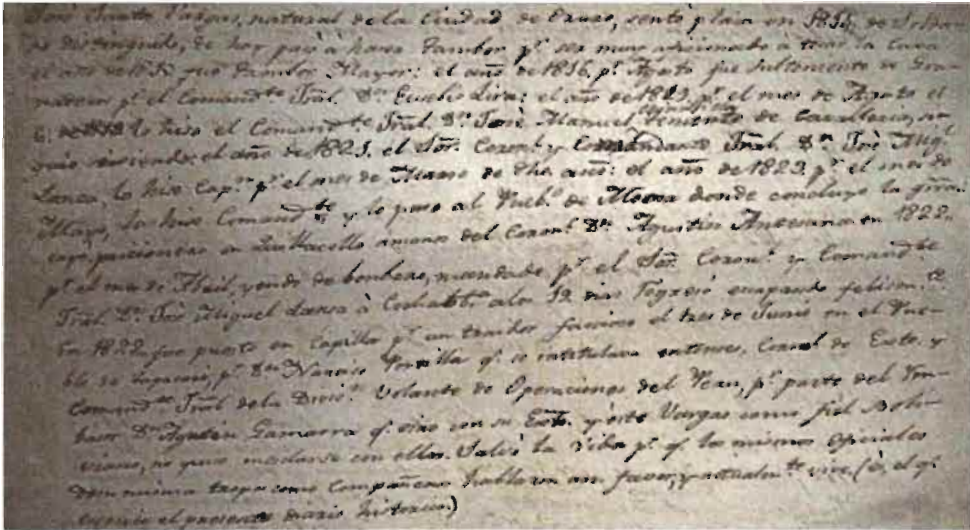 José Santos Vargas, natural de la Ciudad de Oruro, sentó plaza en 1814 de Solda-
do distinguido, de hay pasó à haser Tambor pr. ser muy aficionado a tocar la Caxa
el año de 18 fue Tambor Mayor: el año de 1816, pr. Agosto fue Subteniente de Gra-
naderos pr. el Comandte. Gral. Dn. Eusebio Lira: el año de 1823, pr. el mes de Agosto el
lo hiso el Comandte. Gral. Dn. José Manuel Teniente de Caralleria, si-
guio sirviendo: el año de 1821. el Sor. Coronl. y Comandante Gral. Dn. José Migl.
Lanza, lo hiso Capn. pr. el mes de Marso de dho. año: el año de 1823. pr. el mes de
Mayo, lo hiso Comandte. y lo puso al Puebl. de Mosa donde concluyo la grra.
cayó pricionero en manos del Coronl. Dn. Agustin Antesana en 1822.
pr. el mes de Abril, yendo de bonbero, mandado pr. el Sor. Coronl. y Comandte.
Gral. Dn. José Miguel Lansa à a los 12 dias regresó escapando felismte.
En 1828 fue puesto en Capilla pr. un traidor faccioso el tres de Junio en el Pue-
blo de pr. Dn. qe. se intitulava entonses, Coronl. de Exto. y
Comandte. Gral. dela Divisn. Volante de Operaciones del Peru, pr. parte del
Dn. Agustin Gamarra qe. vino con su Exto. y este Vargas como fiel Boli-
viano, no quiso mesclarse con ellos. Salvó la vida pr. qe. los mismos Oficiales
misma tropa como Compañeros hablaron asu favor, y actualmte. vive (è, el qe.
escrivio el presente diario historico.)